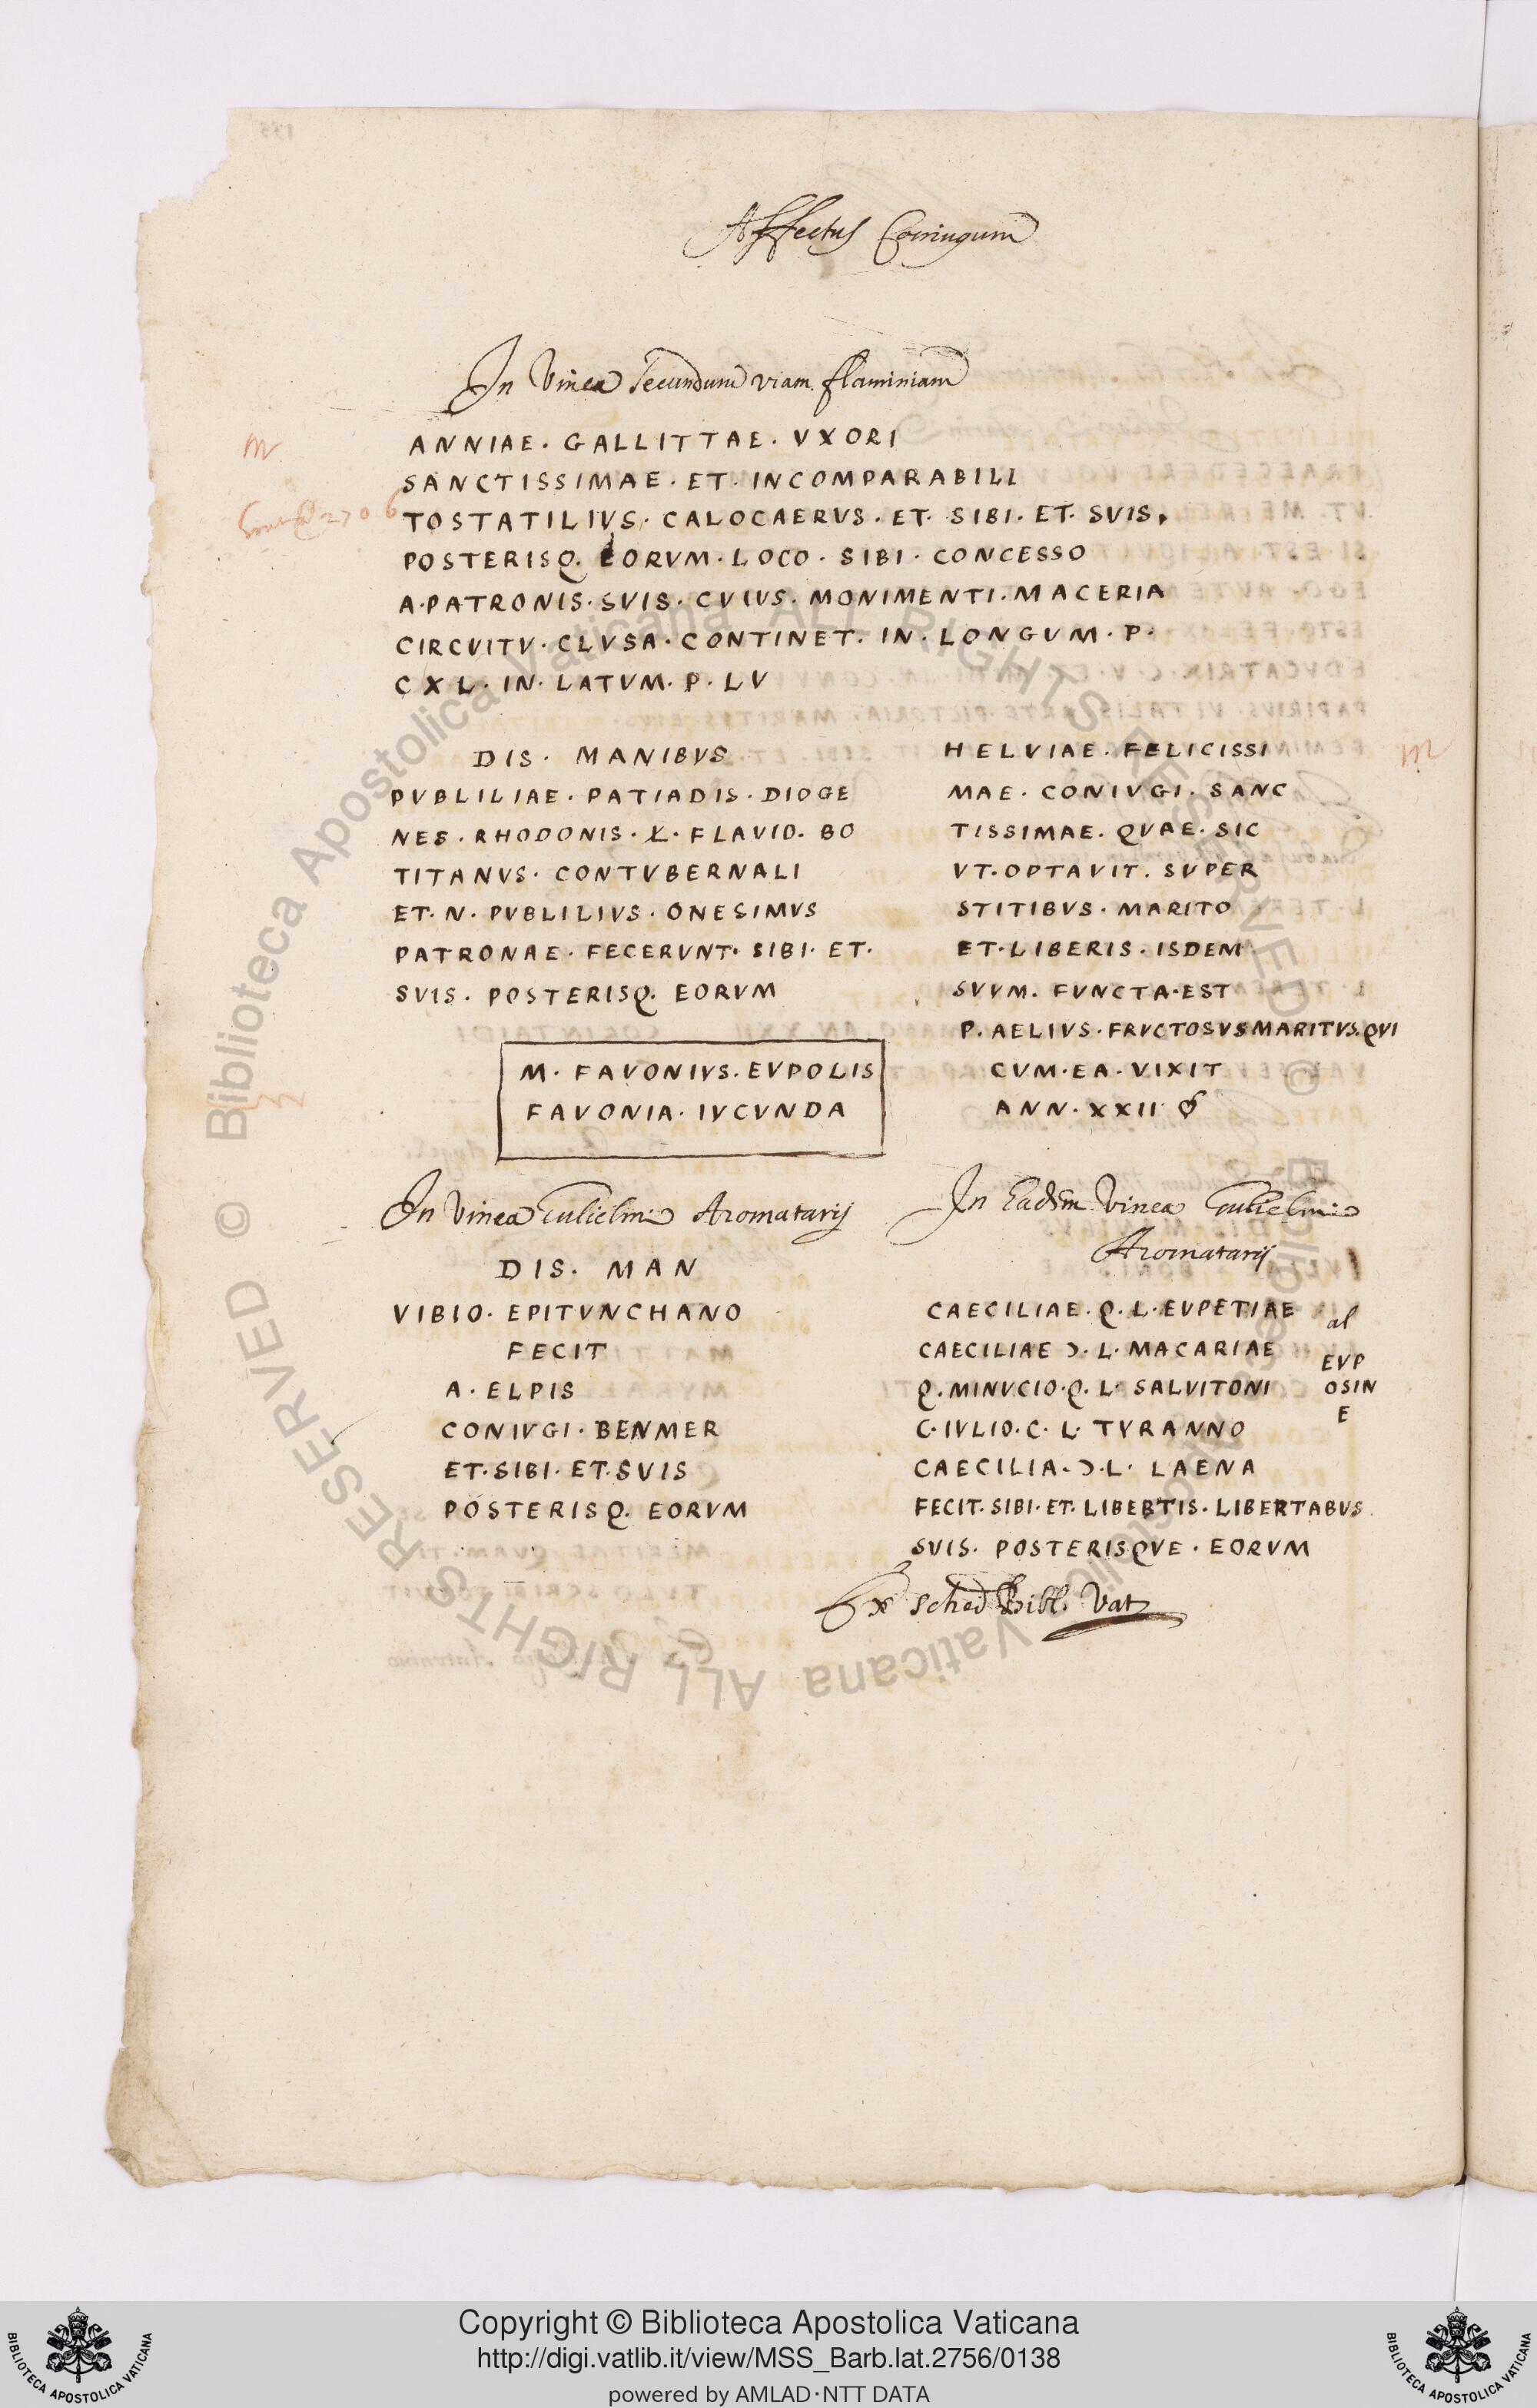 Affectus Coniugum
In Vinea secundum viam flaminiam
ANNIAE · GALLITTAE · VXORI
SANCTISSIMAE · ET · INCOMPARABILI
TOSTATILIVS · CALOCAERVS · ET · SIBI · ET · SVIS ·
POSTERISQ. EORVM · LOCO · SIBI · CONCESSO
A · PATRONIS · SVIS · CVIVS · MONIMENTI · MACERIA
CIRCVITV · CLVSA · CONTINET · IN · LONGUM · P ·
CXL · IN · LATVM · P · LV
DIS · MANIBVS
PVBLILIAE · PATIADIS · DIOGE
NES · RHODONIS · L · FLAVID · BO
TITANVS · CONTVBERNALI
ET · N · PVBLILIVS · ONESIMVS
PATRONAE · FECERVNT · SIBI · ET ·
SVIS · POSTERISQ. EORVM
M · FAVONIVS · EVPOLIS
FAVONIA · IVCVNDA
HELVIAE · FELICISSI
MAE · CONIVGI · SANC
TISSIMAE · QVAE · SIC
VT · OPTAVIT · SVPER
STITIBVS · MARITO
ET · LIBERIS · ISDEM
SVVM · FVNCTA · EST
P. AELIVS · FRVCTOSVS MARITVS · QVI
CVM · EA · VIXIT
ANN · XXII
In Vinea Gulielmi Aromatarij
DIS · MAN
VIBIO · EPITVNCHANO
FECIT
A · ELPIS
CONIVGI · BENMER
ET · SIBI · ET · SVIS
POSTERISQ. EORVM
In Eadem Vinea Gulielmi
Aromatarij
CAECILIAE · Q · L · EVPETIAE
al
CAECILIAE Ɔ · L · MACARIAE
EVP
Q · MINVCIO · Q · L · SALVITONI
OSIN
E
C · IVLIO · C · L · TVRANNO
CAECILIA · Ɔ · L · LAENA
FECIT · SIBI · ET · LIBERTIS · LIBERTABVS
SVIS · POSTERISQVE · EORVM
Ex sched Bibl. Vat
Biblioteca Apostolica Vaticana ALL RIGHTS RESERVED ©
Biblioteca Apostolica Vaticana ALL RIGHTS RESERVED ©
Copyright © Biblioteca Apostolica Vaticana
http://digi.vatlib.it/view/MSS_Barb.lat.2756/0138
powered by AMLAD·NTT DATA
BIBLIOTECA APOSTOLICA VATICANA
BIBLIOTECA APOSTOLICA VATICANA